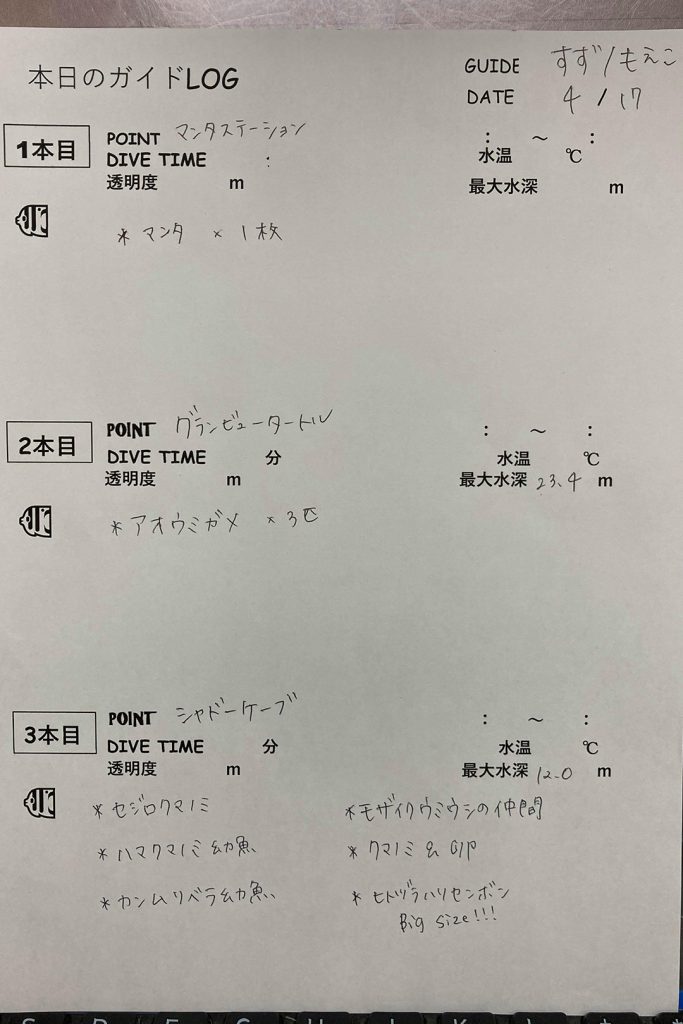 本日のガイドLOG
GUIDE すず/もえこ
DATE 4/17
1本目
POINT マンタステーション
: ～ :
DIVE TIME :
水温 ℃
透明度 m
最大水深 m
* マンタ × 1枚
2本目
POINT グランビュータートル
: ～ :
DIVE TIME 分
水温 ℃
透明度 m
最大水深 23.4 m
* アオウミガメ × 3匹
3本目
POINT シャドーケーブ
: ～ :
DIVE TIME 分
水温 ℃
透明度 m
最大水深 12.0 m
* セジロクマノミ
* モザイクウミウシの仲間
* ハマクマノミ幼魚
* クマノミ &
* カンムリベラ幼魚
* ヒトヅラハリセンボン
Big size!!!